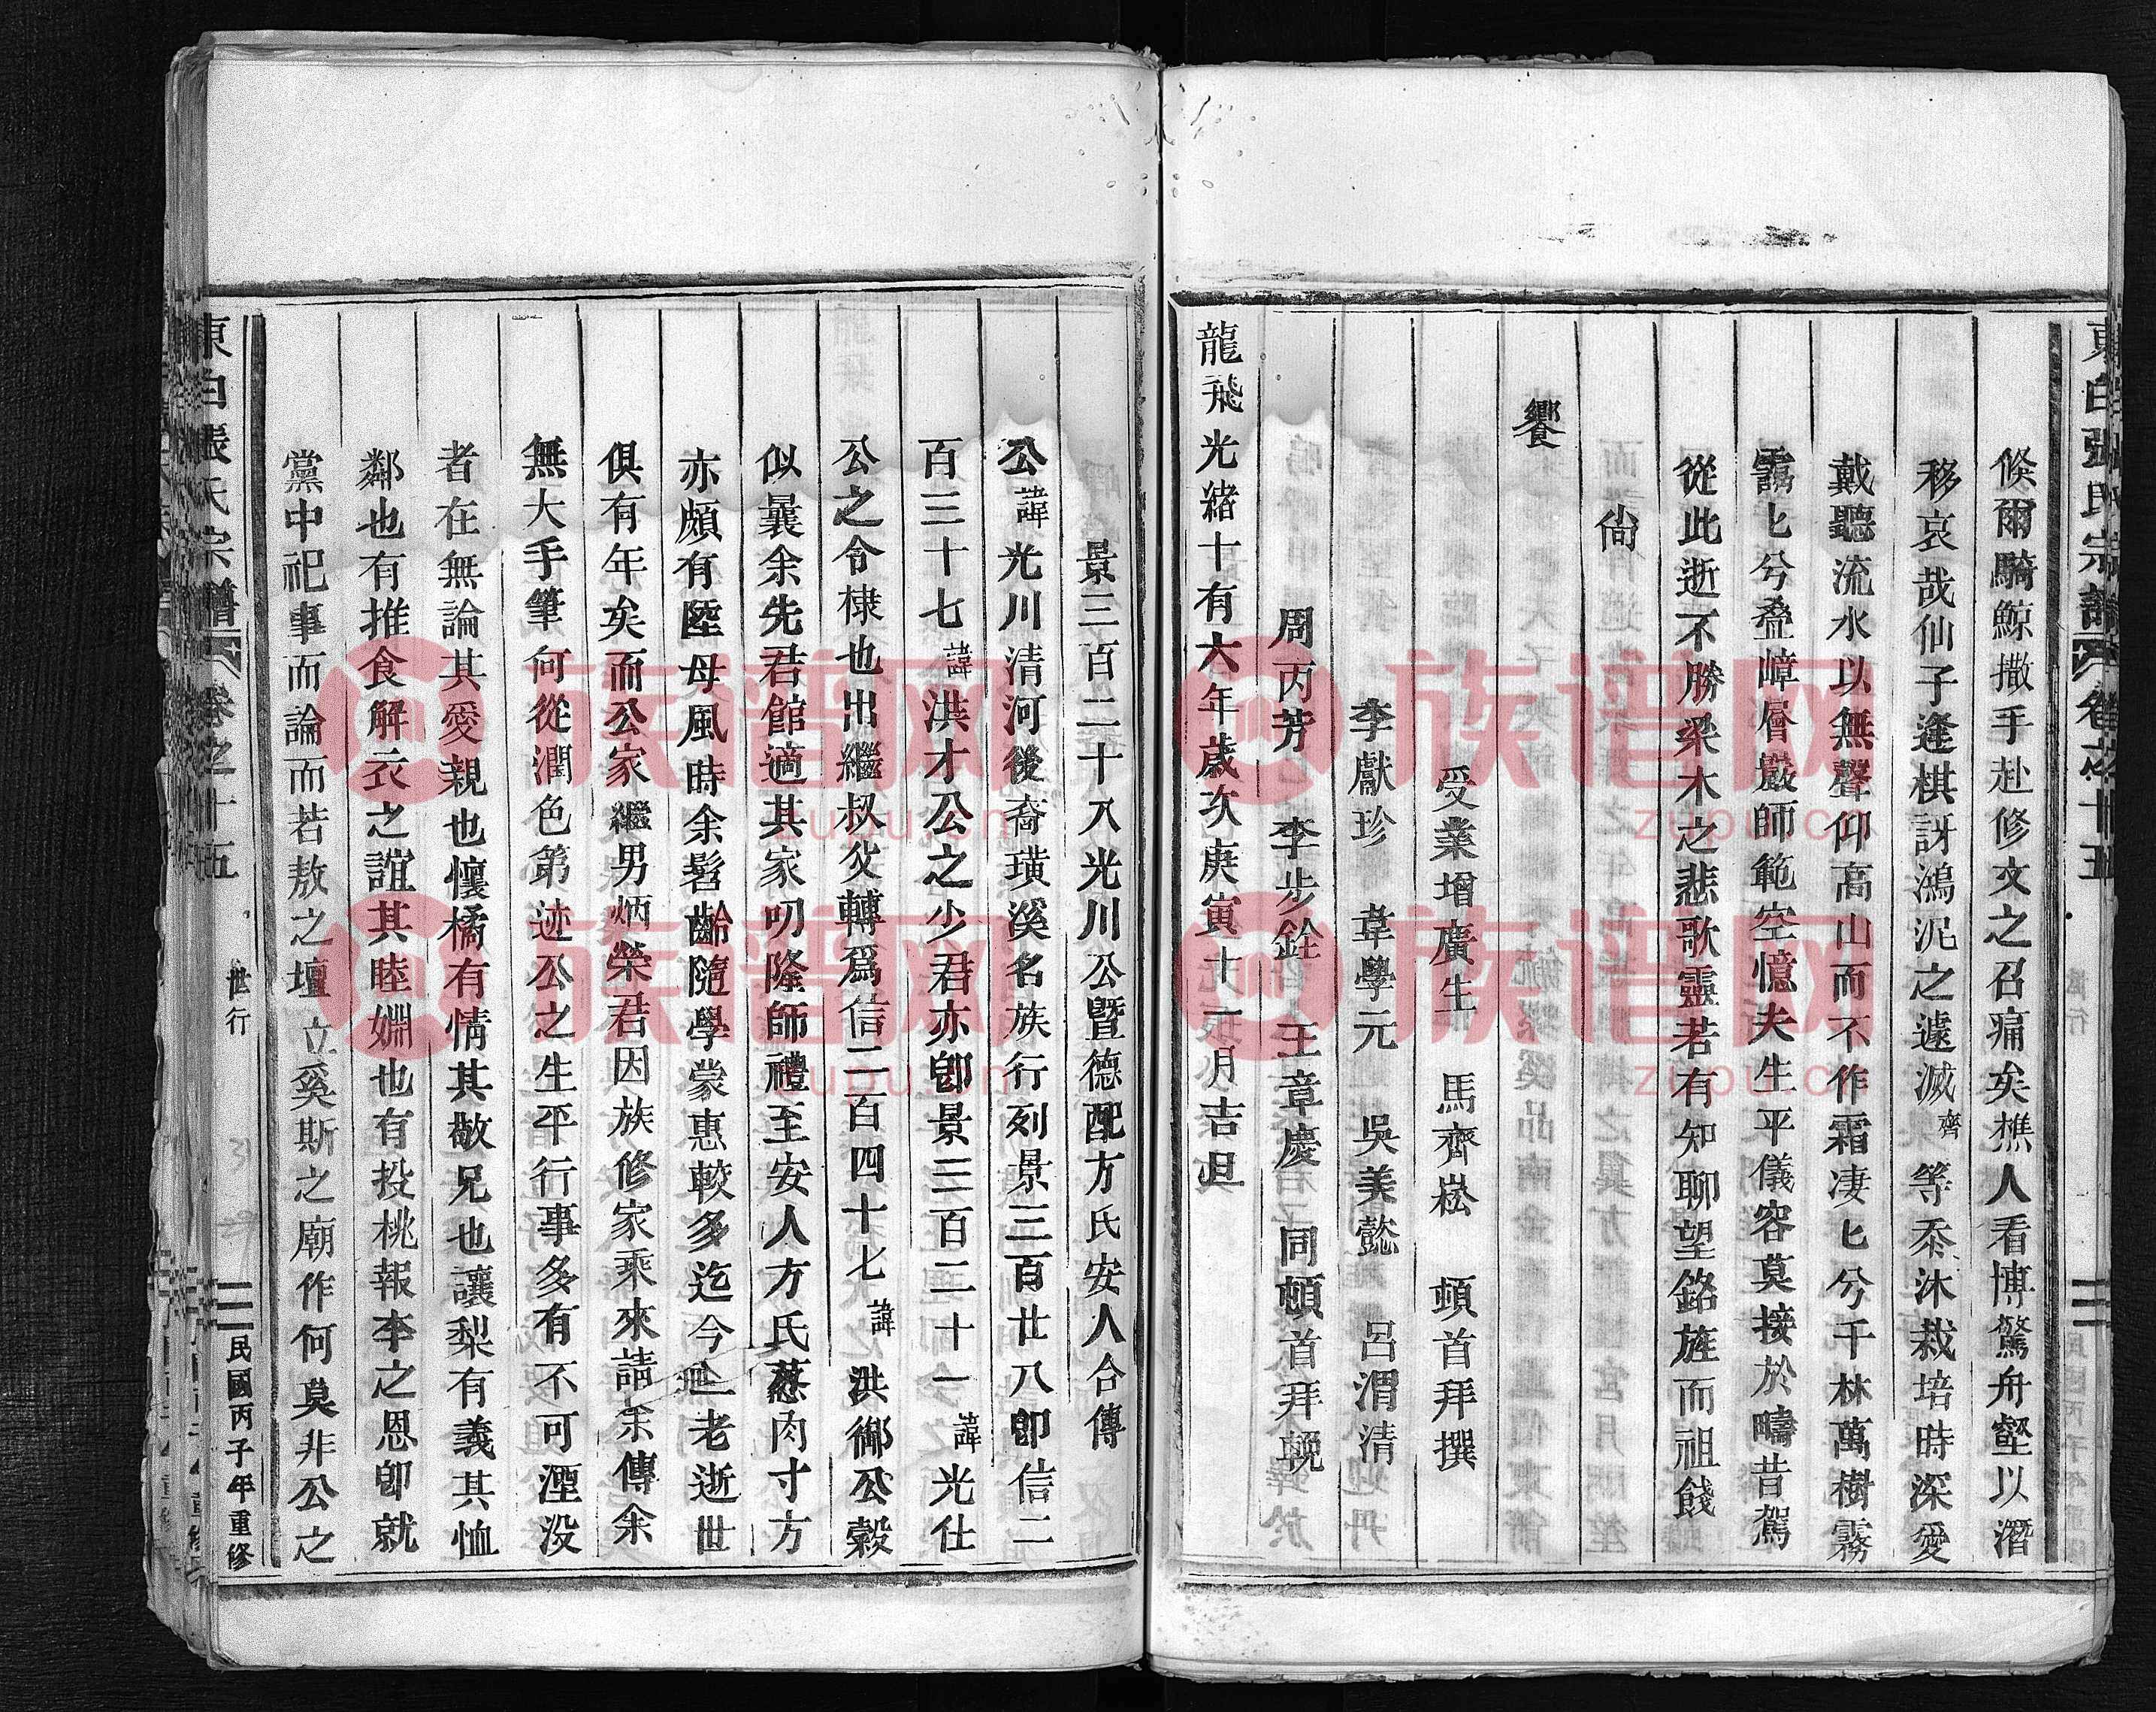 東白張氏宗譜 卷之十五
倏爾騎鯨撒手赴修文之召痛矣樵人看博驚舟壑以潛
移哀哉仙子逢棋訝鴻泥之遽滅齊等忝沐栽培時深愛
戴聽流水以無聲仰高山而不作霜凄匕兮千林萬樹霧
靄匕兮叠嶂層巖師範空憶夫生平儀容莫接於疇昔駕
從此逝不勝梁木之悲歌靈若有知聊望銘旌而祖餞
尙
饗
受業增廣生 馬齊崧 頓首拜撰
李獻珍 韋學元 吳美懿 呂渭清
周丙芳 李步銓 王章慶 同頓首拜輓
龍飛光緒十有六年歲次庚寅十一月吉旦
景三百二十八光川公暨德配方氏安人合傳
公諱光川清河後裔璜溪名族行列景三百廿八卽信二
百三十七諱洪才公之少君亦卽景三百二十一諱光仕
公之令棣也出繼叔父轉爲信二百四十七諱洪鄉公穀
似曩余先君館適其家叨隆師禮至安人方氏葱肉寸方
亦頗有陸母風時余髫齡隨學蒙惠較多迄今二老逝世
俱有年矣而公家繼男炳榮君因族修家乘來請余傳余
無大手筆何從潤色第述公之生平行事多有不可湮没
者在無論其愛親也懷橘有情其敬兄也讓梨有義其恤
鄰也有推食解衣之誼其睦婣也有投桃報李之恩卽就
黨中祀事而論而若敖之壇立奚斯之廟作何莫非公之
東白張氏宗譜 卷之十五 世行 民國丙子年重修
族谱网
zupu.cn
族谱网
zupu.cn
族谱网
zupu.cn
族谱网
zupu.cn